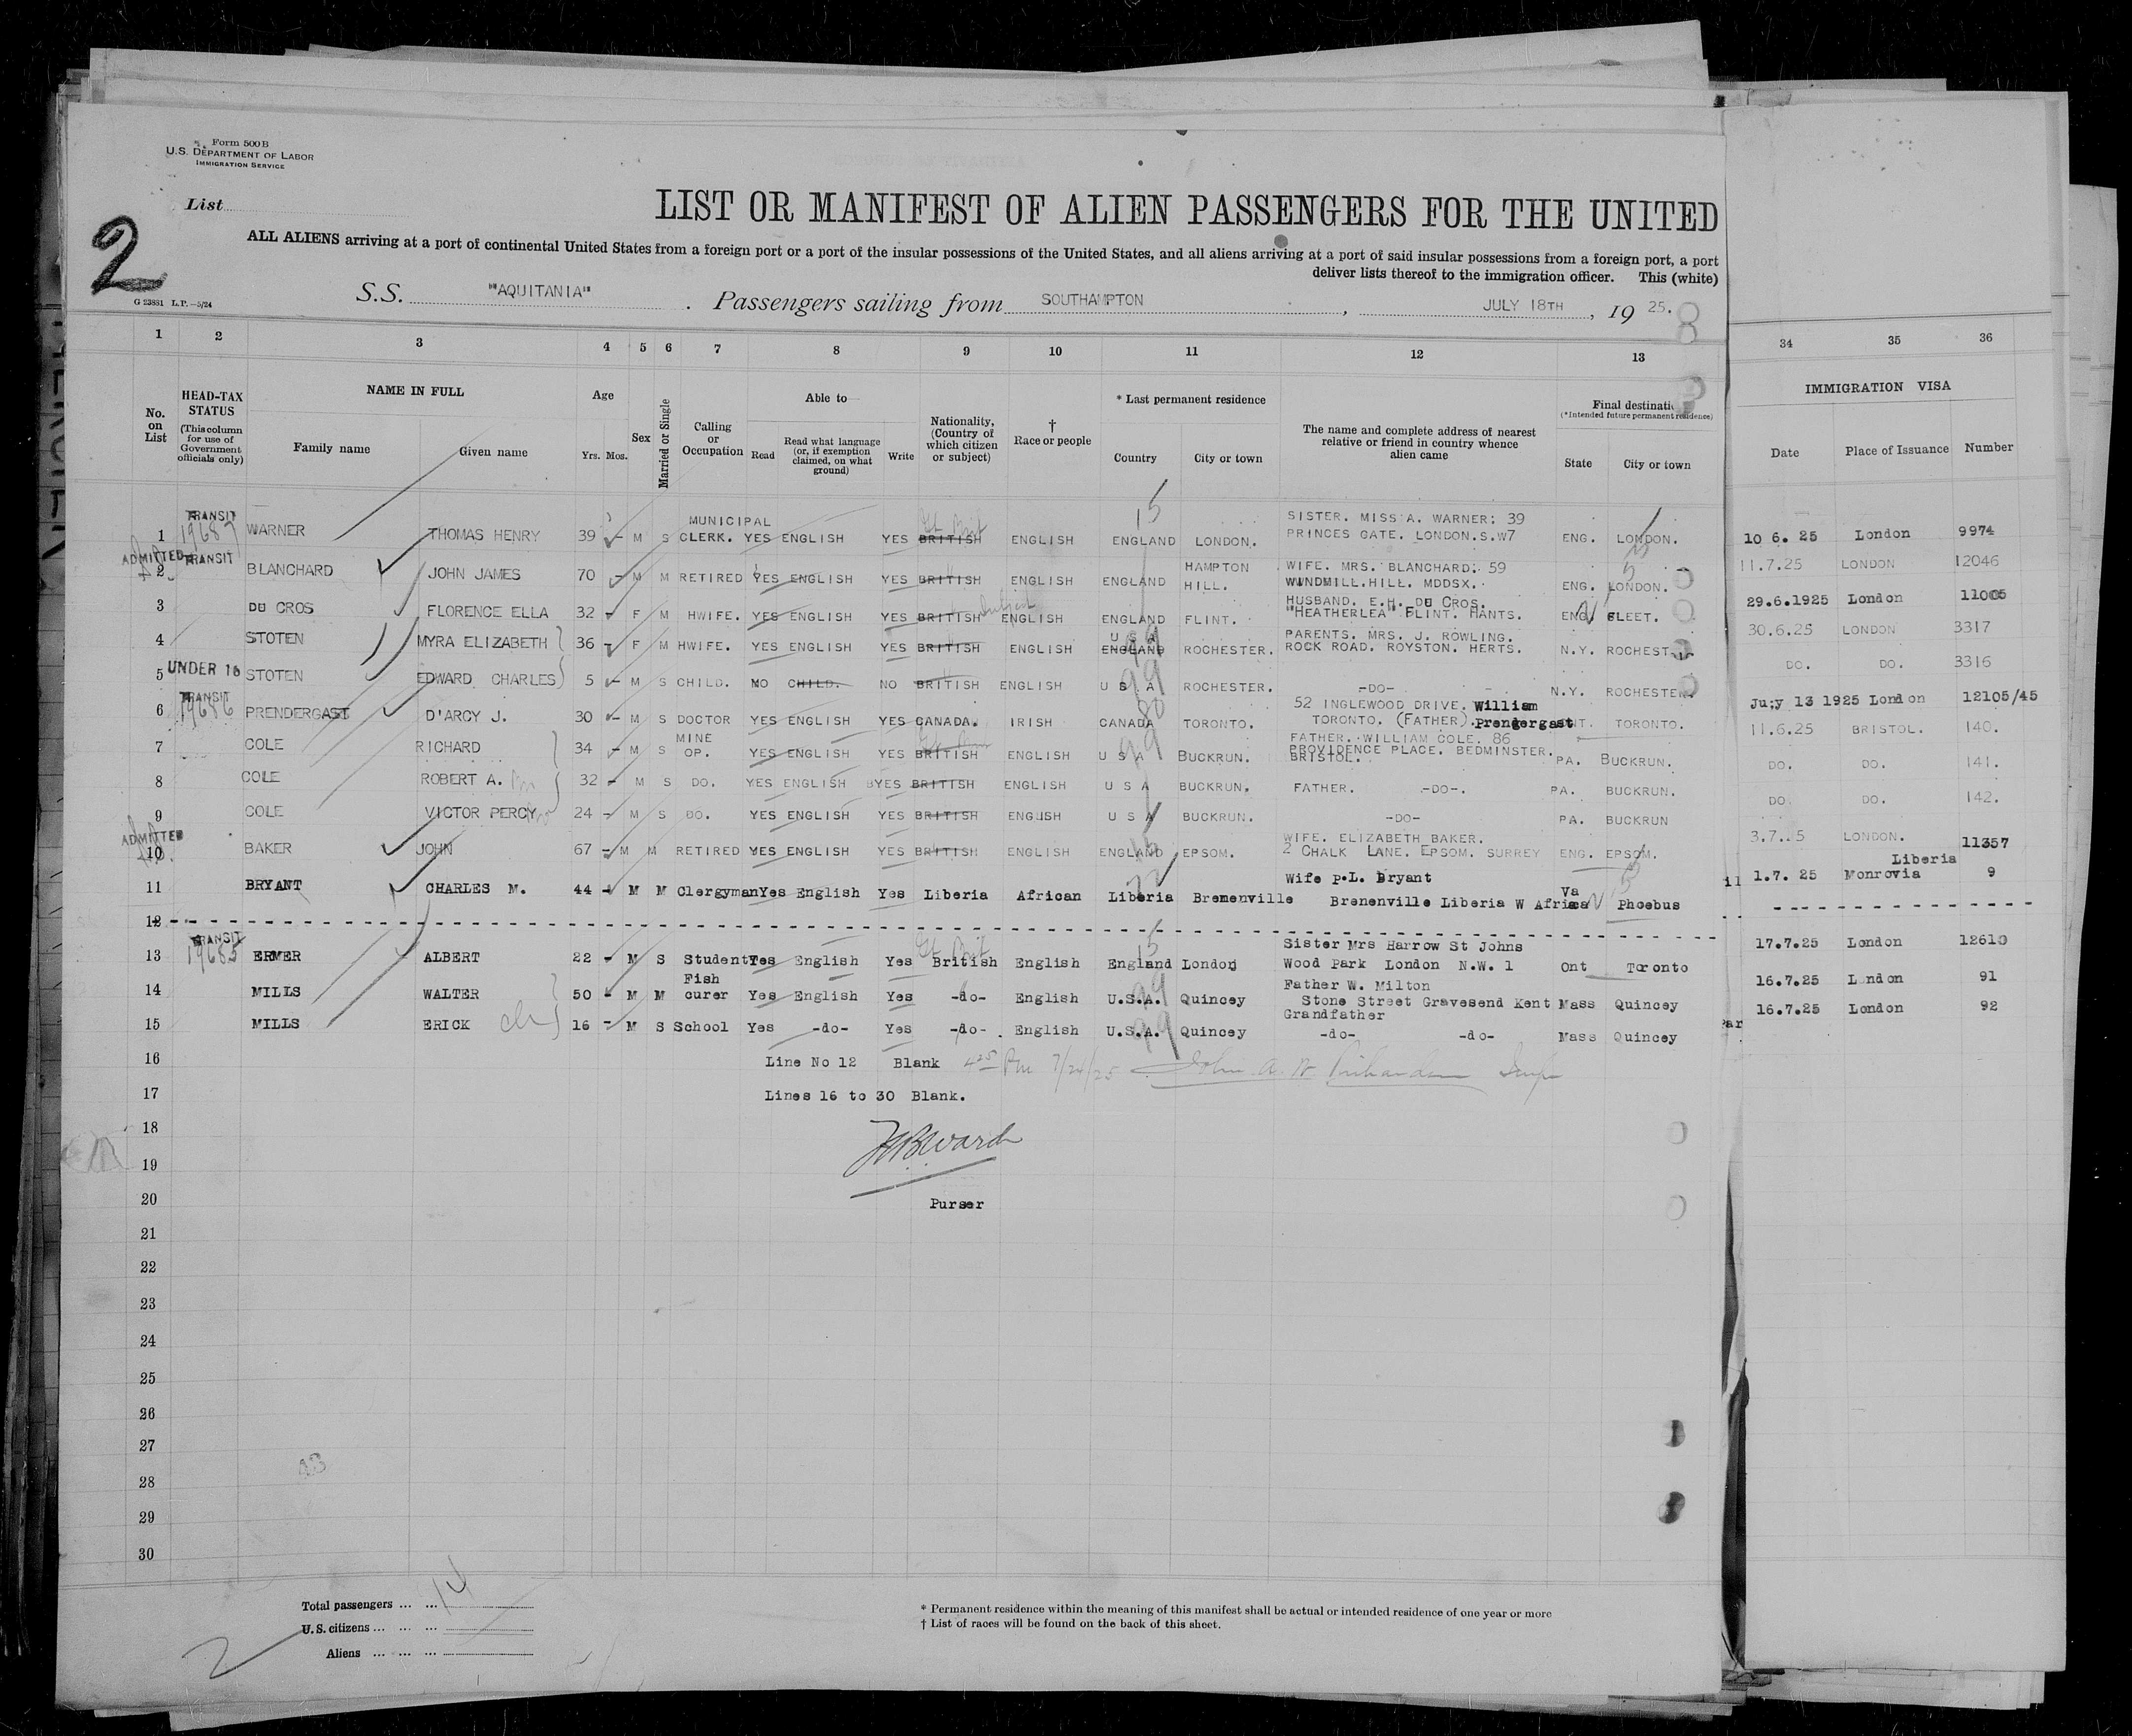 Form 500B
U.S. DEPARTMENT OF LABOR
IMMIGRATION SERVICE
List
2
LIST OR MANIFEST OF ALIEN PASSENGERS FOR THE UNITED
ALL ALIENS arriving at a port of continental United States from a foreign port or a port of the insular possessions of the United States, and all aliens arriving at a port of said insular possessions from a foreign port, a port
deliver lists thereof to the immigration officer. This (white)
G 23881 L.P.—5/24
S.S. "AQUITANIA" . Passengers sailing from SOUTHAMPTON , JULY 18TH , 19 25.
1 2 3 4 5 6 7 8 9 10 11 12 13 34 35 36
No. on List
HEAD-TAX STATUS (This column for use of Government officials only)
NAME IN FULL
Family name Given name
Age
Yrs. Mos.
Sex
Married or Single
Calling or Occupation
Able to
Read
Read what language (or, if exemption claimed, on what ground)
Write
Nationality, (Country of which citizen or subject)
† Race or people
* Last permanent residence
Country City or town
The name and complete address of nearest relative or friend in country whence alien came
Final destinati
(*Intended future permanent residence)
State City or town
IMMIGRATION VISA
Date Place of Issuance Number
1 TRANSIT 19687 WARNER THOMAS HENRY 39 - M S MUNICIPAL CLERK. YES ENGLISH YES BRITISH Gt Brit ENGLISH 15 ENGLAND LONDON. SISTER. MISS A. WARNER: 39 PRINCES GATE. LONDON.S.W7 ENG. LONDON. 10 6. 25 London 9974
2 ADMITTED TRANSIT BLANCHARD JOHN JAMES 70 - M M RETIRED YES ENGLISH YES BRITISH ENGLISH ENGLAND HAMPTON HILL. WIFE. MRS. BLANCHARD: 59 WINDMILL.HILL. MDDSX. ENG. LONDON. 11.7.25 LONDON 12046
3 DU CROS FLORENCE ELLA 32 - F M HWIFE. YES ENGLISH YES BRITISH Subject ENGLISH ENGLAND FLINT. HUSBAND. E.H. DU CROS. "HEATHERLEA" FLINT. HANTS. ENG. FLEET. 29.6.1925 London 11005
4 STOTEN MYRA ELIZABETH 36 - F M HWIFE. YES ENGLISH YES BRITISH ENGLISH U S A ENGLAND 99 ROCHESTER. PARENTS. MRS. J. ROWLING. ROCK ROAD. ROYSTON. HERTS. N.Y. ROCHEST 30.6.25 LONDON 3317
5 UNDER 16 STOTEN EDWARD CHARLES 5 - M S CHILD. NO CHILD. NO BRITISH ENGLISH U S A 99 ROCHESTER. -DO- N.Y. ROCHESTER. DO. DO. 3316
6 TRANSIT 19686 PRENDERGAST D'ARCY J. 30 - M S DOCTOR YES ENGLISH YES CANADA. IRISH 80 CANADA TORONTO. 52 INGLEWOOD DRIVE. William TORONTO. (FATHER). Prengergast NT. TORONTO. Ju;y 13 1925 London 12105/45
7 COLE RICHARD 34 - M S MINE OP. YES ENGLISH YES BRITISH ENGLISH U S A 99 BUCKRUN. FATHER. WILLIAM COLE. 86 PROVIDENCE PLACE. BEDMINSTER. BRISTOL. PA. BUCKRUN. 11.6.25 BRISTOL. 140.
8 COLE ROBERT A. 32 - M S DO. YES ENGLISH BYES BRITISH ENGLISH U S A BUCKRUN. FATHER. -DO-. PA. BUCKRUN. DO. DO. 141.
9 COLE VICTOR PERCY 24 - M S DO. YES ENGLISH YES BRITISH ENGLISH U S A BUCKRUN. -DO- PA. BUCKRUN DO. DO. 142.
10 ADMITTED BAKER JOHN 67 - M M RETIRED YES ENGLISH YES BRITISH ENGLISH ENGLAND 15 EPSOM. WIFE. ELIZABETH BAKER. 2 CHALK LANE. EPSOM. SURREY ENG. EPSOM. 3.7..5 LONDON. 11357
11 BRYANT CHARLES M. 44 - M M Clergyman Yes English Yes Liberia African Liberia Bremenville Wife P.L. Bryant Brenenville Liberia W Africa Va Phoebus il 1.7. 25 Liberia Monrovia 9
12
13 TRANSIT 19685 ERMER ALBERT 22 - M S Student Yes English Yes Gt Brit British English 15 England London Sister Mrs Harrow St Johns Wood Park London N.W. 1 Ont Toronto 17.7.25 London 12610
14 MILLS WALTER 50 - M M Fish curer Yes English Yes -do- English 99 U.S.A. Quincey Father W. Milton Stone Street Gravesend Kent Mass Quincey 16.7.25 London 91
15 MILLS ERICK ch 16 - M S School Yes -do- Yes -do- English 99 U.S.A. Quincey Grandfather -do- -do- Mass Quincey Par 16.7.25 London 92
16 Line No 12 Blank 4 25 Pm 7/24/25 John A. W Richardson Insp
17 Lines 16 to 30 Blank.
18
19
20 Purser
21
22
23
24
25
26
27
28
29
30
43
Total passengers ... ... 14
U.S. citizens ... ... ...
Aliens ... ... ...
2
* Permanent residence within the meaning of this manifest shall be actual or intended residence of one year or more
† List of races will be found on the back of this sheet.